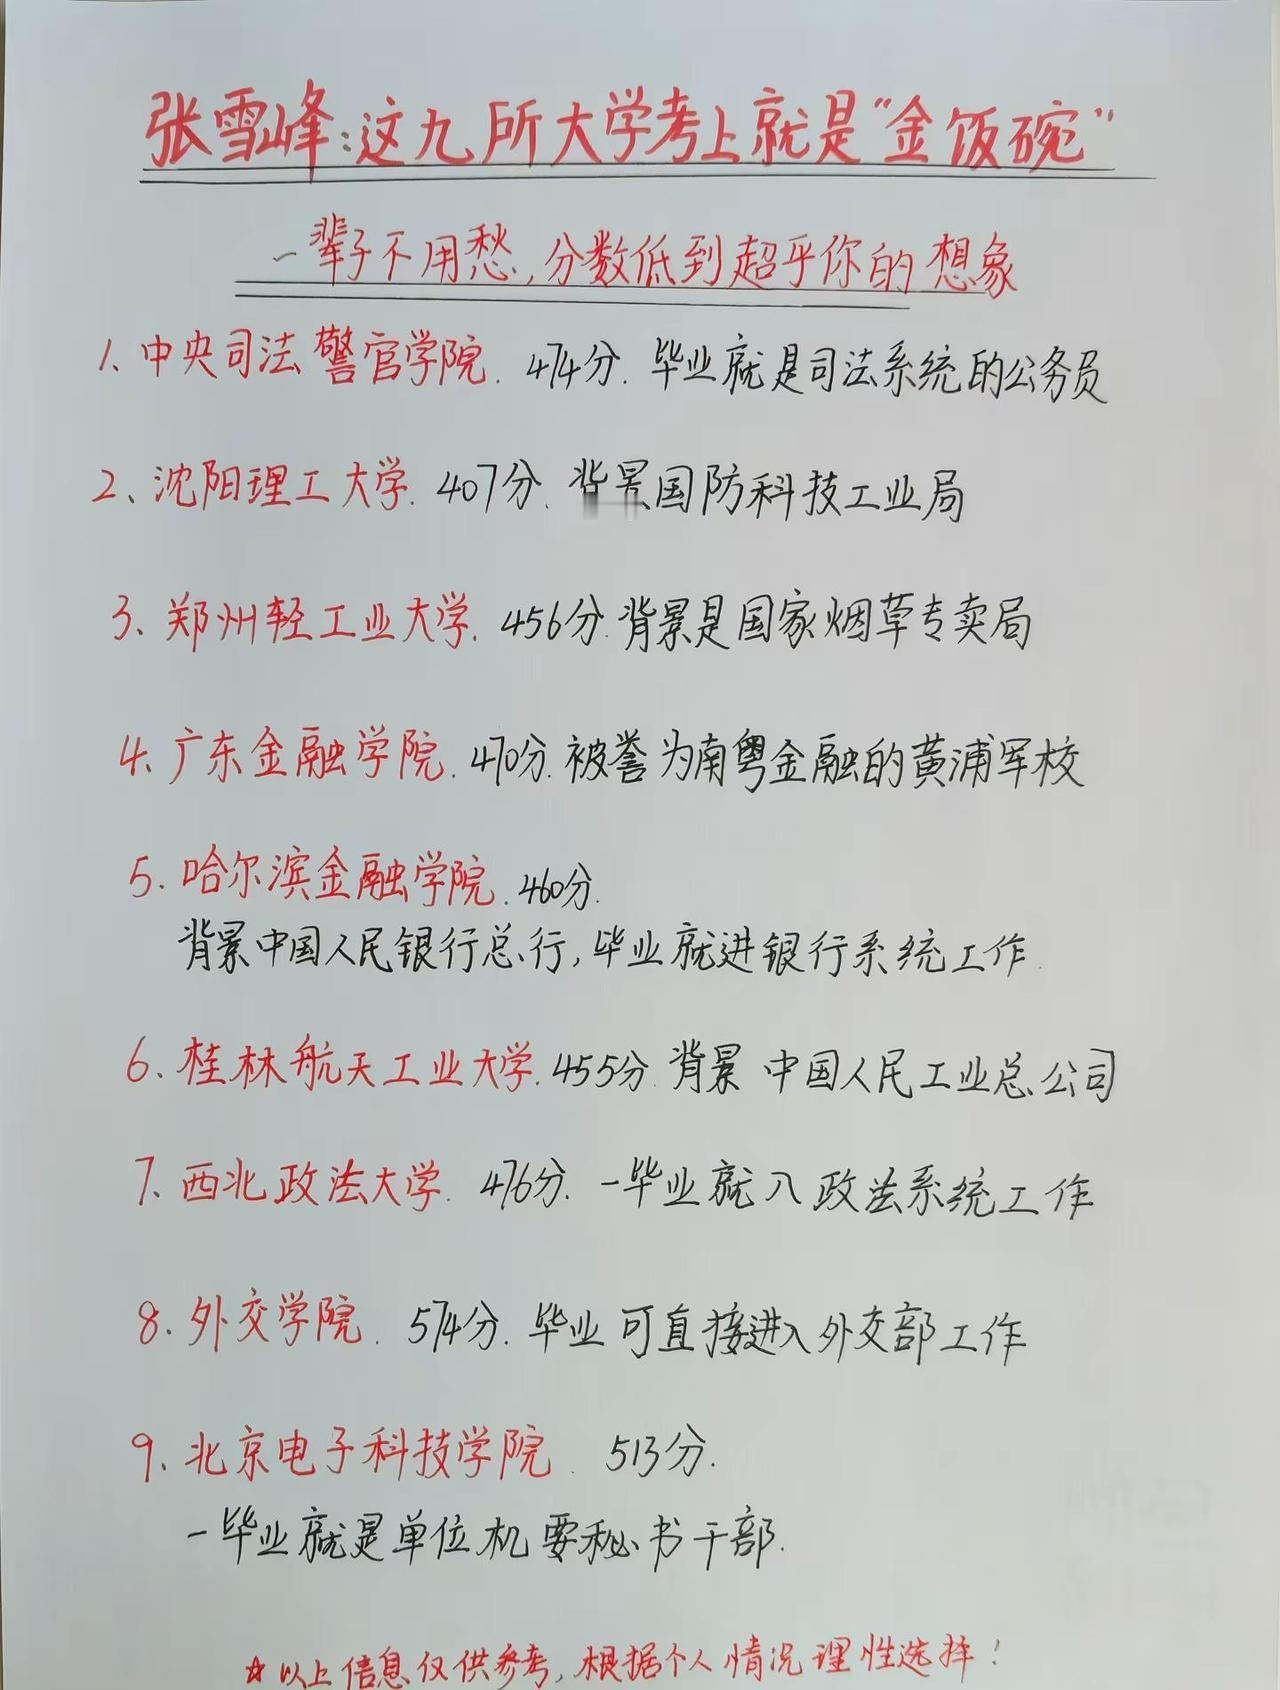 张雪峰:这九所大学考上就是“金饭碗”
一辈子不用愁,分数低到超乎你的想象
1、中央司法警官学院.474分.毕业就是司法系统的公务员
2、沈阳理工大学.407分.背景国防科技工业局
3、郑州轻工业大学.456分.背景是国家烟草专卖局
4、广东金融学院.470分.被誉为南粤金融的黄浦军校
5.哈尔滨金融学院.460分.
背景中国人民银行总行,毕业就进银行系统工作.
6.桂林航天工业大学.455分.背景中国人民工业总公司
7、西北政法大学.476分.一毕业就入政法系统工作
8.外交学院.574分.毕业可直接进入外交部工作
9、北京电子科技学院.513分.
一毕业就是单位机要秘书干部.
☆以上信息仅供参考,根据个人情况理性选择!